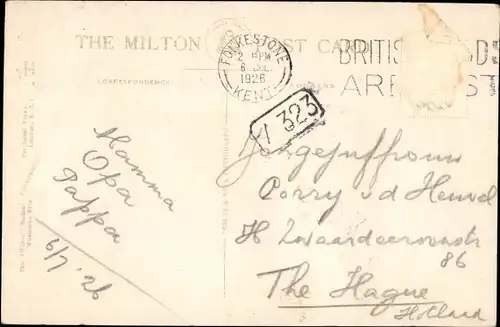 THE MILTON POST CARD
CORRESPONDENCE
FOLKESTONE
2 PM
6 JUL
1926
KENT
BRITISH GOODS
ARE BEST
323
Mamma
Opa
Pappa
6/7 '26
Jongejuffrouw
Corry v d Heuvel
H Zwaardecroonstr
86
The Hague
Holland